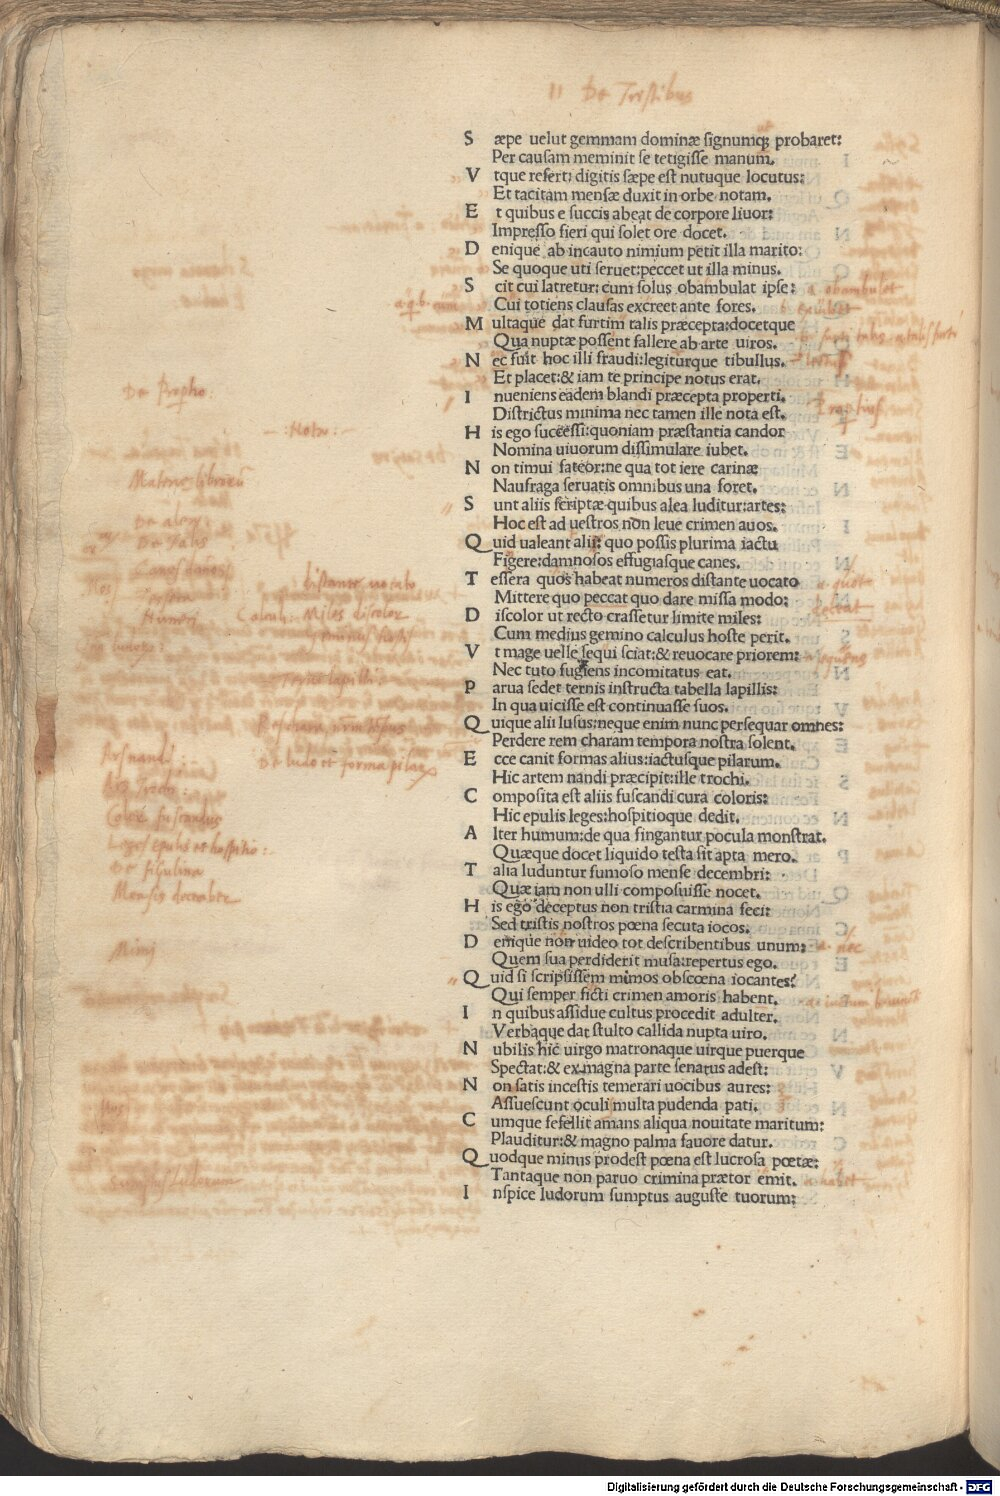 II De Tristibus
S æpe uelut gemmam dominæ signumq; probaret:
Per causam meminit se tetigisse manum.
V tque refert: digitis sæpe est nutuque locutus:
Et tacitam mensæ duxit in orbe notam.
E t quibus e succis abeat de corpore liuor:
Impresso fieri qui solet ore docet.
D enique ab incauto nimium petit illa marito:
Se quoque uti seruet: peccet ut illa minus.
S cit cui latretur: cum solus obambulat ipse: a obambulet
Cui totiens clausas excreet ante fores.
M ultaque dat furtim talis præcepta: docetque
Qua nuptæ possent fallere ab arte uiros.
N ec fuit hoc illi fraudi: legiturque tibullus.
Et placet: & iam te principe notus erat.
De Propho:
I nueniens eadem blandi præcepta properti.
Districtus minima nec tamen ille nota est.
:Nota:
H is ego successi: quoniam præstantia candor
Nomina uiuorum dissimulare iubet.
N on timui fateor: ne qua tot iere carinæ
Naufraga seruatis omnibus una foret.
S unt aliis scriptæ quibus alea luditur: artes:
Hoc est ad uestros non leue crimen auos.
De alea
Q uid ualeant alii: quo possis plurima iactu
De Talis
Figere: damnosos effugiasque canes.
T essera quos habeat numeros distante uocato a. quot
Mittere quo peccat quo dare missa modo:
D iscolor ut recto crassetur limite miles:
Calculi: Miles discolor
Cum medius gemino calculus hoste perit.
V t mage uelle sequi sciat: & reuocare priorem:
Nec tuto fugiens incomitatus eat.
Terni lapilli
P arua sedet ternis instructa tabella lapillis:
In qua uicisse est continuasse suos.
Q uique alii lusus: neque enim nunc persequar omnes:
Perdere rem charam tempora nostra solent.
Ars nandi
De ludo et forma pilarum
E cce canit formas alius: iactusque pilarum.
Hic artem nandi præcipit: ille trochi.
C omposita est aliis fuscandi cura coloris:
Hic epulis leges: hospitioque dedit.
A lter humum: de qua fingantur pocula monstrat.
Leges epulis et hospitio:
Quæque docet liquido testa sit apta mero.
De figulina
T alia luduntur fumoso mense decembri:
Quæ iam non ulli composuisse nocet.
Mensis decembr
H is ego deceptus non tristia carmina feci:
Sed tristis nostros pœna secuta iocos.
D enique non uideo tot de scribentibus unum: a. nec
Mimi
Quem sua perdiderit musa: repertus ego.
Q uid si scripsissem mimos obscœna iocantes?
Qui semper ficti crimen amoris habent.
I n quibus assidue cultus procedit adulter.
Verbaque dat stulto callida nupta uiro.
N ubilis hic uirgo matronaque uirque puerque
Spectat: & ex magna parte senatus adest:
N on satis incestis temerari uocibus aures:
Assuescunt oculi multa pudenda pati.
C umque fefellit amans aliqua nouitate maritum:
Plauditur: & magno palma fauore datur.
Q uodque minus prodest pœna est lucrosa poetæ:
Tantaque non paruo crimina prætor emit.
Sumptus Ludorum
I nspice ludorum sumptus auguste tuorum:
Digitalisierung gefördert durch die Deutsche Forschungsgemeinschaft - DFG